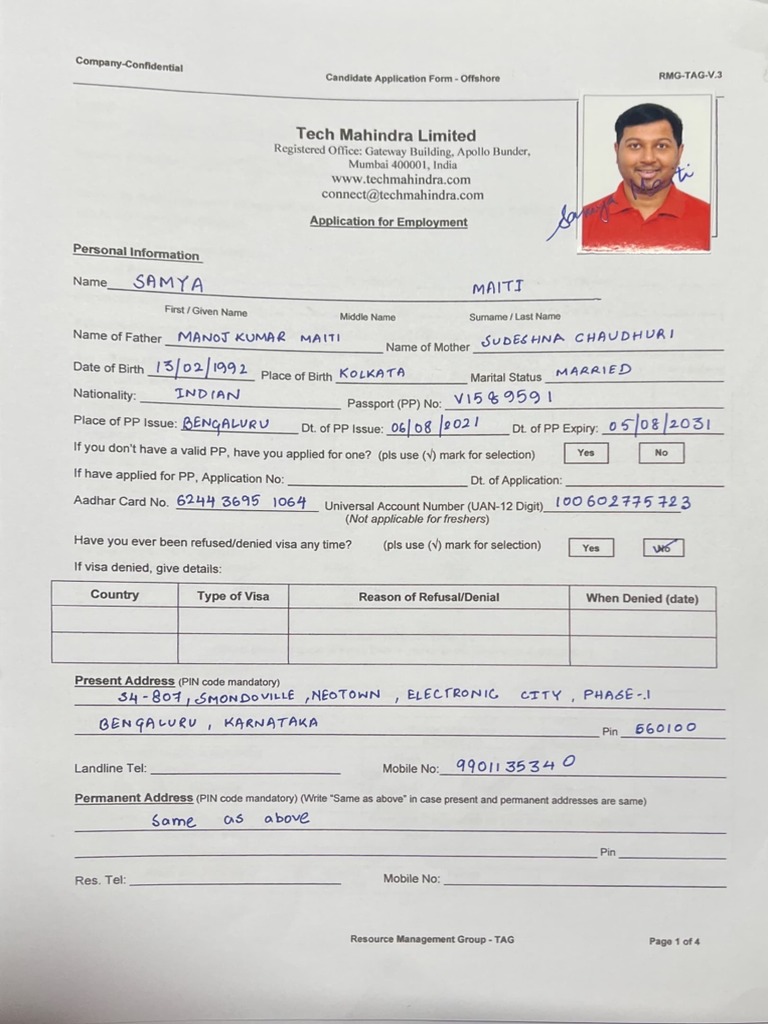 Company-Confidential
Candidate Application Form - Offshore
RMG-TAG-V.3
Tech Mahindra Limited
Registered Office: Gateway Building, Apollo Bunder,
Mumbai 400001, India
www.techmahindra.com
connect@techmahindra.com
Application for Employment
Samya Maiti
Personal Information
Name SAMYA MAITI
First / Given Name Middle Name Surname / Last Name
Name of Father MANOJ KUMAR MAITI Name of Mother SUDESHNA CHAUDHURI
Date of Birth 13/02/1992 Place of Birth KOLKATA Marital Status MARRIED
Nationality: INDIAN Passport (PP) No: V1589591
Place of PP Issue: BENGALURU Dt. of PP Issue: 06/08/2021 Dt. of PP Expiry: 05/08/2031
If you don't have a valid PP, have you applied for one? (pls use (√) mark for selection) Yes No
If have applied for PP, Application No: Dt. of Application:
Aadhar Card No. 6244 3695 1064 Universal Account Number (UAN-12 Digit) 100602775723
(Not applicable for freshers)
Have you ever been refused/denied visa any time? (pls use (√) mark for selection) Yes No
If visa denied, give details:
Country Type of Visa Reason of Refusal/Denial When Denied (date)
Present Address (PIN code mandatory)
S4-807, SMONDOVILLE, NEOTOWN, ELECTRONIC CITY, PHASE-1
BENGALURU, KARNATAKA Pin 560100
Landline Tel: Mobile No: 9901135340
Permanent Address (PIN code mandatory) (Write "Same as above" in case present and permanent addresses are same)
Same as above
Pin
Res. Tel: Mobile No:
Resource Management Group - TAG
Page 1 of 4